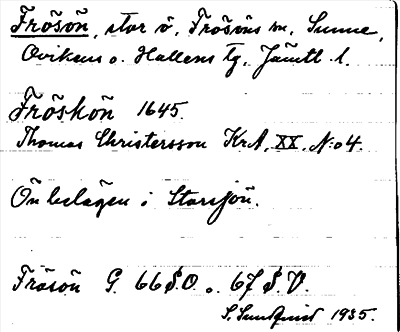 Frösön, stor ö, Frösöns sn, Sunne,
Ovikens o. Hallens tg, Jämtl. l.
Fröskön 1645.
Thomas Christersson KrA, XX, N:o 4.
Ön belägen i Storsjön.
Frösön G. 66 S.O. o. 67 S.V.
S. Sundqvist 1935.